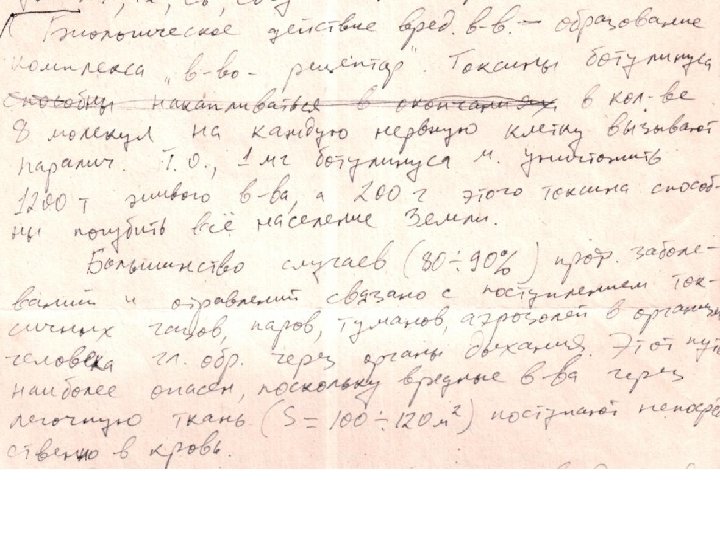 Биологическое действие вред. в-в. – образование
комплекса "в-во - рецептор". Токсины ботулинуса
способны накапливаться в окончаниях в кол-ве
8 молекул на каждую нервную клетку вызывают
паралич. Т.О., 1 мг ботулинуса м. уничтожить
1200 т живого в-ва, а 200 г этого токсина способ-
ны погубить всё население Земли.
Большинство случаев (80÷90%) проф. заболе-
ваний и отравлений связано с поступлением ток-
сичных газов, паров, туманов, аэрозолей в организм
человека гл. обр. через органы дыхания. Этот путь
наиболее опасен, поскольку вредные в-ва через
легочную ткань (S = 100÷120 м²) поступают непосред
ственно в кровь.